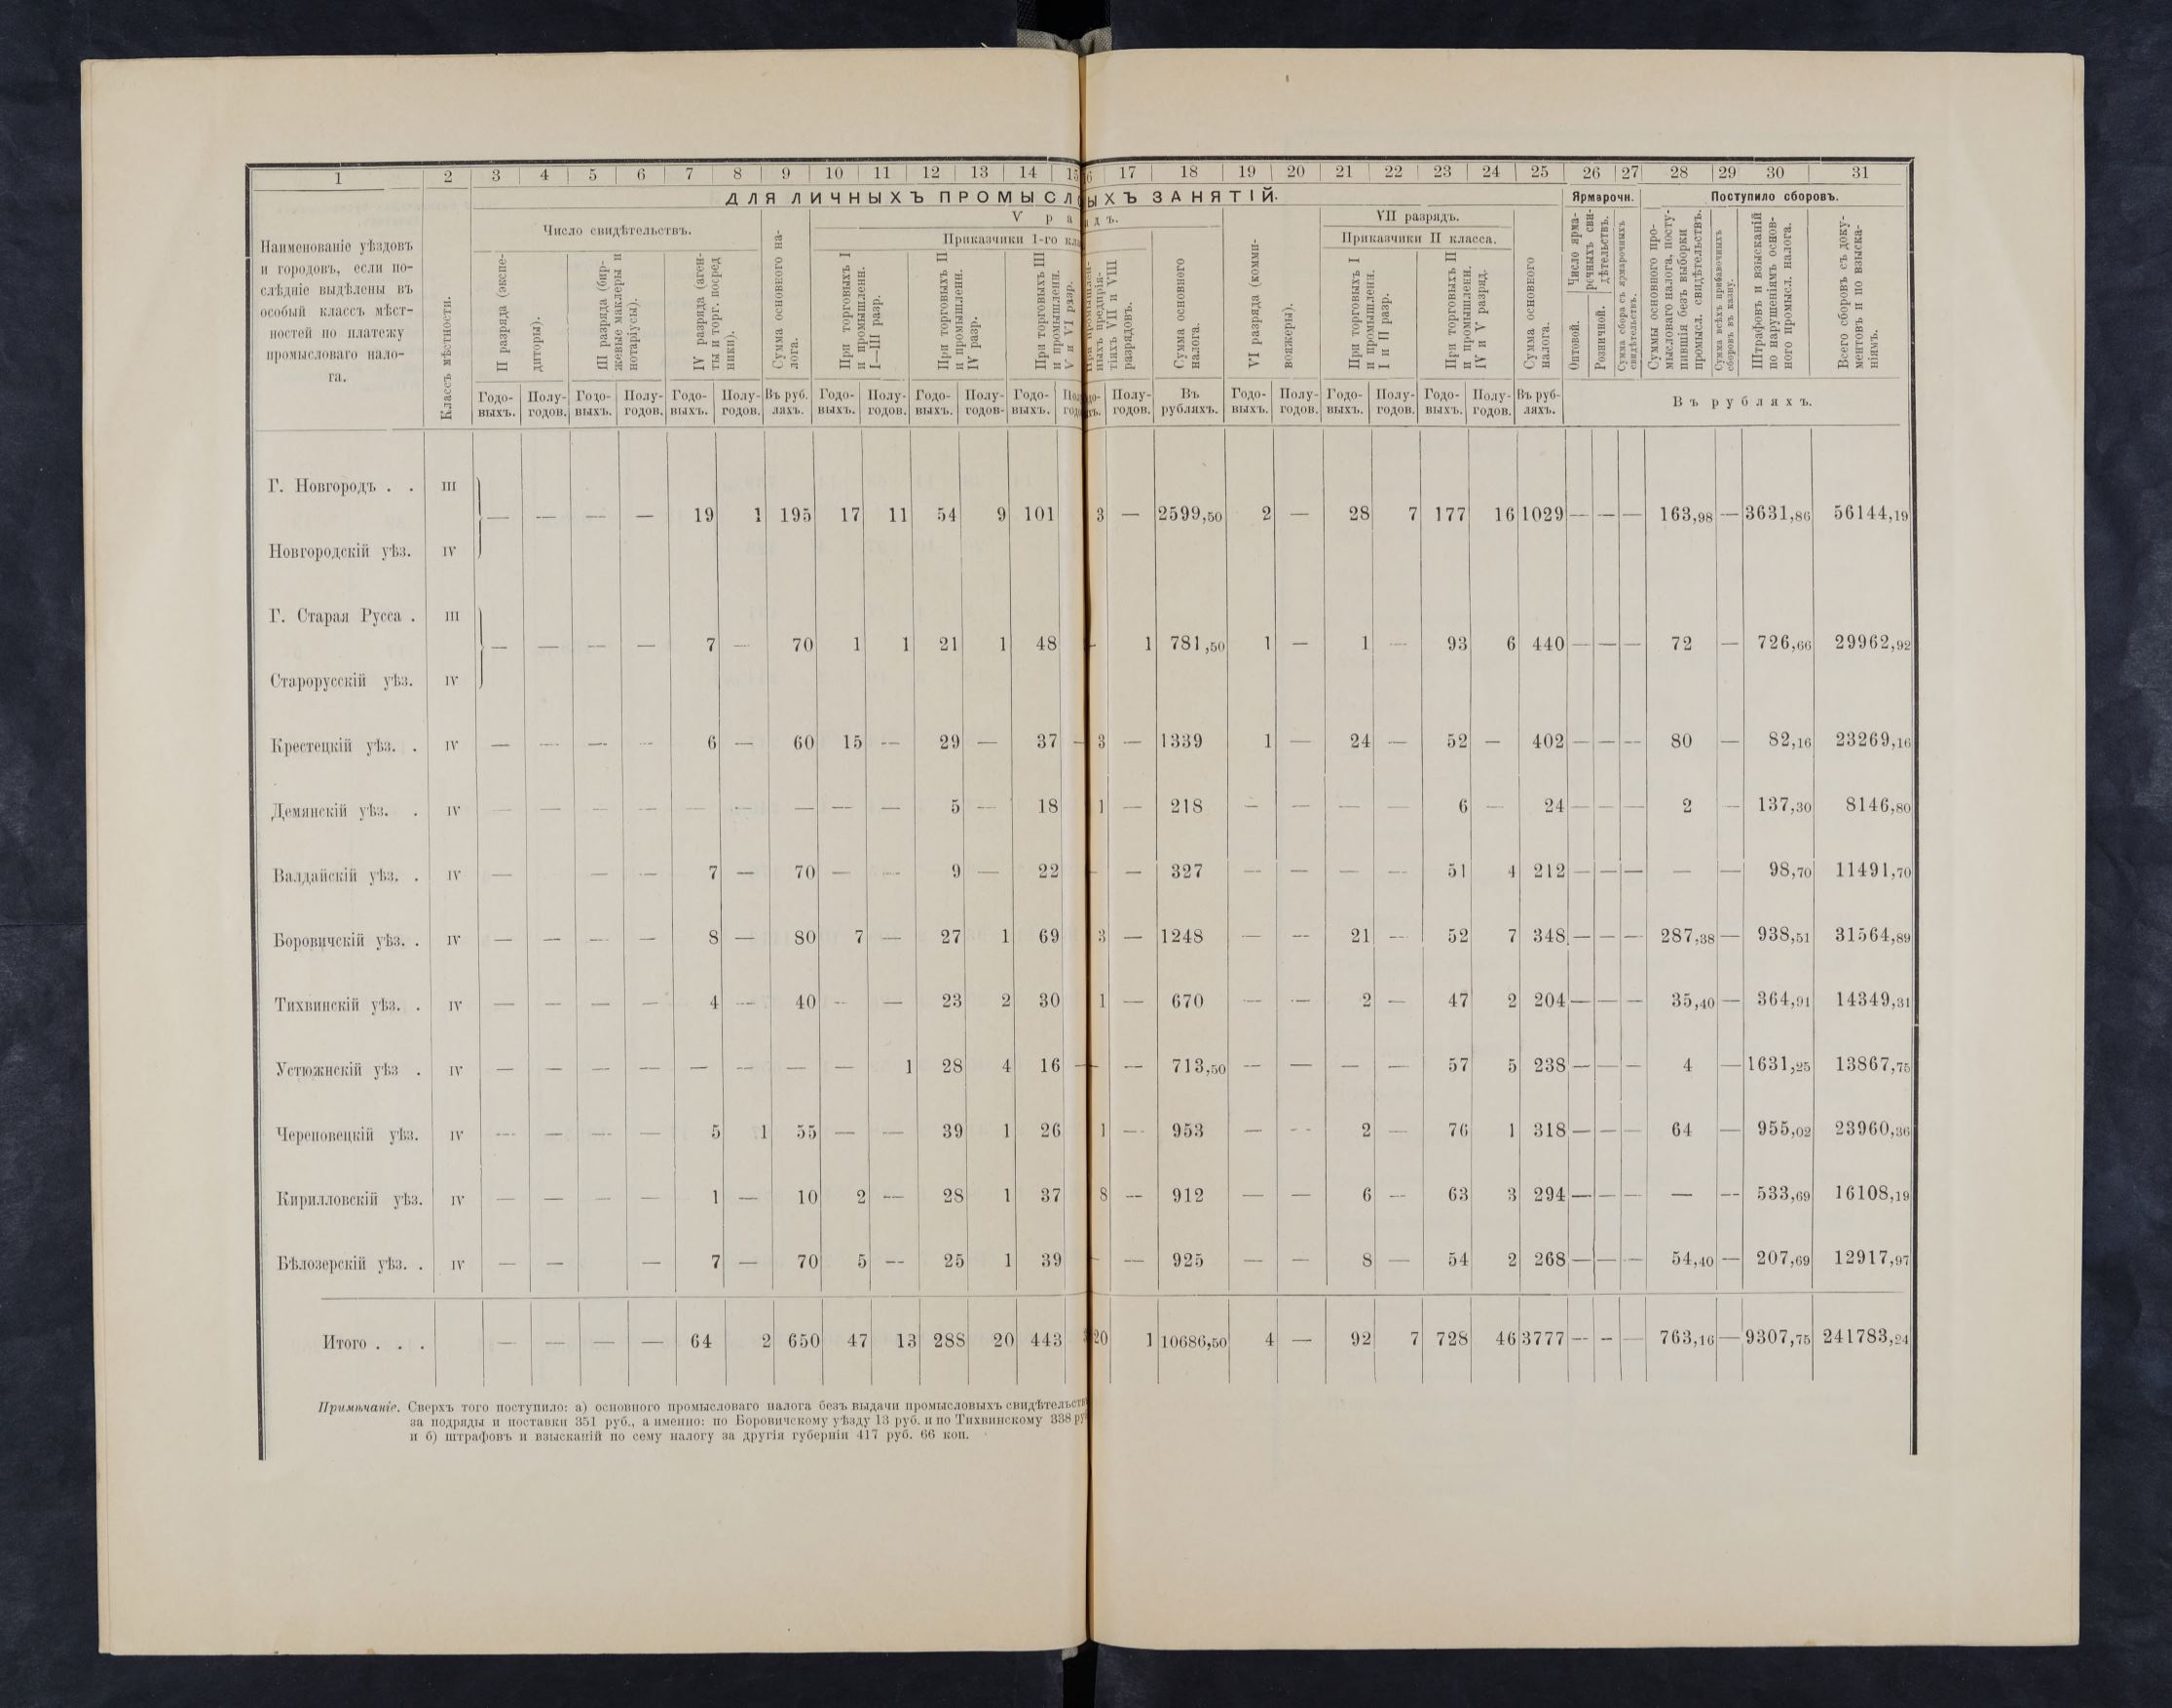 1 2 3 4 5 6 7 8 9 10 11 12 13 14 15 16 17 18 19 20 21 22 23 24 25 26 27 28 29 30 31
ДЛЯ ЛИЧНЫХЪ ПРОМЫСЛОВЫХЪ ЗАНЯТІЙ.
Ярмарочн.
Поступило сборовъ.
Наименованіе уѣздовъ
и городовъ, если по-
слѣдніе выдѣлены въ
особый классъ мѣст-
ностей по платежу
промысловаго нало-
га.
Классъ мѣстности.
Число свидѣтельствъ.
II разряда (экспе-
диторы).
III разряда (бир-
жевые маклеры и
нотаріусы).
IV разряда (аген-
ты и торг. посред
ники).
Сумма основного на-
лога.
V разрядъ.
Приказчики 1-го
При торговыхъ I
и промышленн.
I—III разр.
При торговыхъ II
и промышленн.
IV разр.
При торговыхъ III
и промышленн.
V и VI разр.
При промышлен-
ныхъ предпрія-
тіяхъ VII и VIII
разрядовъ.
Сумма основного
налога.
VI разряда (комми-
вояжеры).
VII разрядъ.
Приказчики II класса.
При торговыхъ I
и промышленн.
I и II разр.
При торговыхъ II
и промышленн.
IV и V разряд.
Сумма основного
налога.
Число ярма-
рочныхъ сви-
дѣтельствъ.
Оптовой.
Розничной.
Сумма сбора съ ярмарочныхъ
свидѣтельствъ.
Суммы основного про-
мысловаго налога, посту-
пившія безъ выборки
промысл. свидѣтельствъ.
Сумма всѣхъ прибавочныхъ
сборовъ въ казну.
Штрафовъ и взысканій
по нарушеніямъ основ-
ного промысл. налога.
Всего сборовъ съ доку-
ментовъ и по взыска-
ніямъ.
Годо-выхъ. Полу-годов. Годо-выхъ. Полу-годов. Годо-выхъ. Полу-годов. Въ руб.ляхъ. Годо-выхъ. Полу-годов. Годо-выхъ. Полу-годов- Годо-выхъ. Полу-годов. Въ рубляхъ. Годо-выхъ. Полу-годов. Годо-выхъ. Полу-годов. Годо-выхъ. Полу-годов. Въ руб-ляхъ. Въ рубляхъ.
Г. Новгородъ . . III
— — — — 19 1 195 17 11 54 9 101 3 — 2599,50 2 — 28 7 177 16 1029 — — — 163,98 — 3631,86 56144,19
Новгородскій уѣз. IV
Г. Старая Русса . III
— — — — 7 — 70 1 1 21 1 48 — 1 781,50 1 — 1 — 93 6 440 — — — 72 — 726,66 29962,92
Старорусскій уѣз. IV
Крестецкій уѣз. . IV — — — — 6 — 60 15 — 29 — 37 — 3 — 1339 1 — 24 — 52 — 402 — — — 80 — 82,16 23269,16
Демянскій уѣз. . IV — — — — — — — — — 5 — 18 1 — 218 — — — — 6 — 24 — — — 2 — 137,30 8146,80
Валдайскій уѣз. . IV — — — 7 — 70 — — 9 — 22 — — 327 — — — — 51 4 212 — — — — — 98,70 11491,70
Боровичскій уѣз. . IV — — — — 8 — 80 7 — 27 1 69 3 — 1248 — — 21 — 52 7 348 — — — 287,38 — 938,51 31564,89
Тихвинскій уѣз. . IV — — — — 4 — 40 — — 23 2 30 1 — 670 — — 2 — 47 2 204 — — — 35,40 — 364,91 14349,31
Устюжнскій уѣз . IV — — — — — — — — 1 28 4 16 — — — 713,50 — — — — 57 5 238 — — — 4 — 1631,25 13867,75
Череповецкій уѣз. IV — — — — 5 1 55 — — 39 1 26 1 — 953 — — 2 — 76 1 318 — — — 64 — 955,02 23960,36
Кирилловскій уѣз. IV — — — — 1 — 10 2 — 28 1 37 8 — 912 — — 6 — 63 3 294 — — — — — 533,69 16108,19
Бѣлозерскій уѣз. . IV — — — 7 — 70 5 — 25 1 39 — — 925 — — 8 — 54 2 268 — — — 54,40 — 207,69 12917,97
Итого . . . — — — — 64 2 650 47 13 288 20 443 20 1 10686,50 4 — 92 7 728 46 3777 — — — 763,16 — 9307,75 241783,24
Примѣчаніе. Сверхъ того поступило: а) основного промысловаго налога безъ выдачи промысловыхъ свидѣтельствъ
за подряды и поставки 351 руб., а именно: по Боровичскому уѣзду 13 руб. и по Тихвинскому 338 ру
и б) штрафовъ и взысканій по сему налогу за другія губерніи 417 руб. 66 коп.